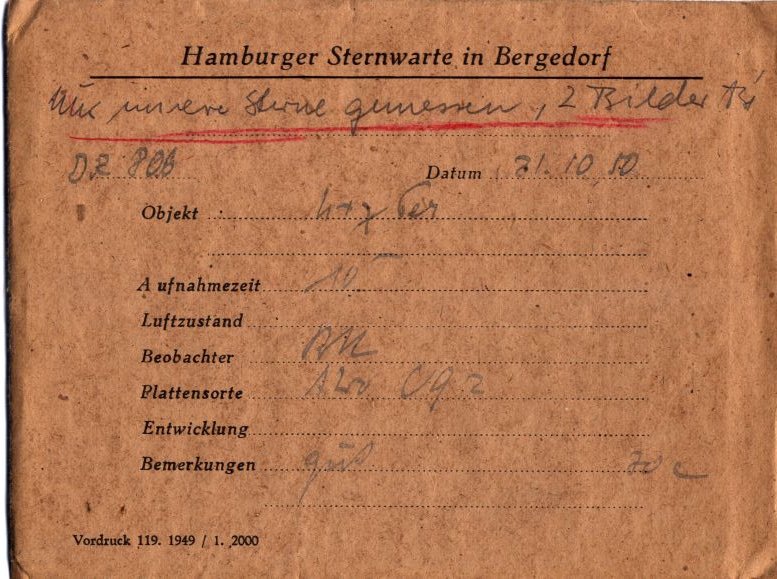 Hamburger Sternwarte in Bergedorf
innere Sterne gemessen, 2 Bilder
Datum 31.10.50
Objekt h + χ Per
Aufnahmezeit 10
Luftzustand
Beobachter
Plattensorte
Entwicklung
Bemerkungen gut
Vordruck 119. 1949 / 1. 2000